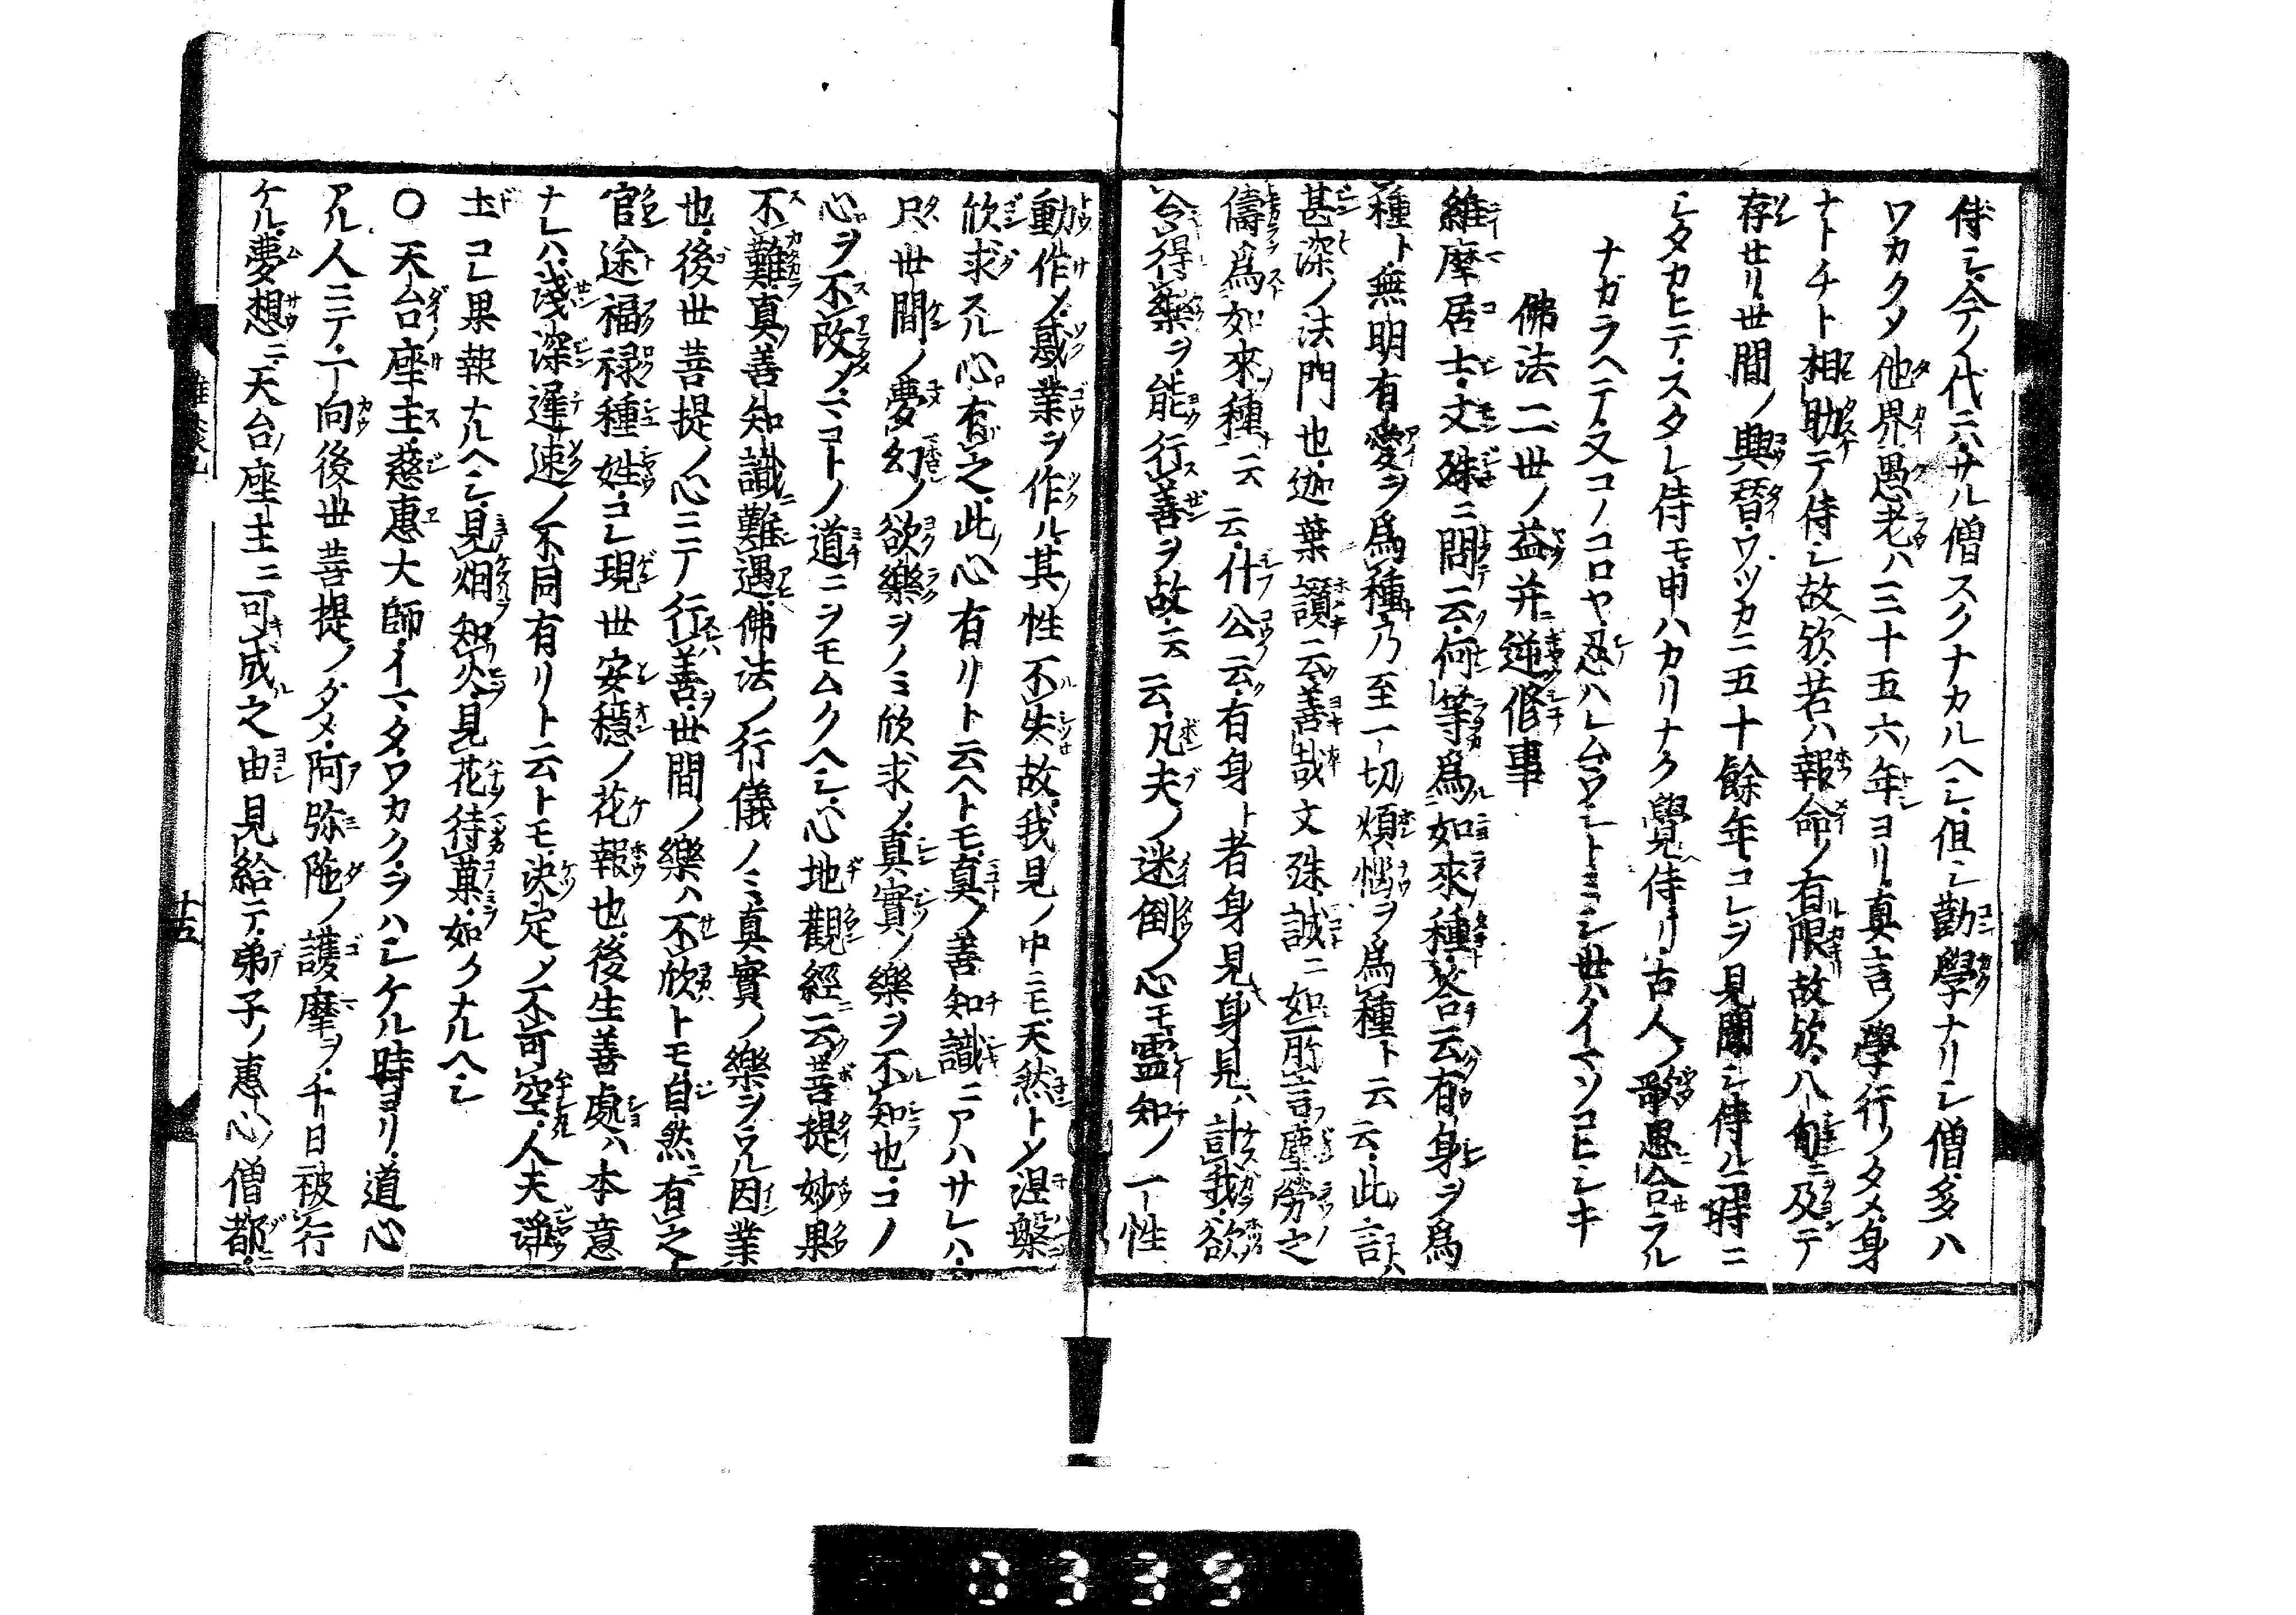 侍シ、今ノ代ニハ、サル僧スクナカルヘシ、但シ勸學ナリシ僧、多ハ
ワカクメ他界、愚老ハ三十五六ノ年ヨリ、真言ノ學行ノタメ、身
ナトチト相助テ侍シ故歟、若ハ報命ノ有限故歟、八旬ニ及テ
存セリ、世間ノ興替、ワツカニ五十餘年、コレヲ見聞シ侍ルニ、時ニ
シタカヒテ、スタレ侍モ、申ハカリナク覺侍リ、古人ノ歌思合ラル
ナガラヘテ又コノコロヤ忍ハレムウシトミシ世ソイマハコヒシキ
佛法二世ノ益并逆修事
維摩居士、文殊ニ問云、何等爲如來種、答云、有身ヲ爲
種ト、無明有愛ヲ爲種、乃至一切煩惱ヲ爲種ト云云、此言ハ
甚深ノ法門也、迦葉讃云、善哉文殊、誠ニ如所言、塵勞之
儔爲如來種云云、什公云、有身ト者身見、身見ハ計我、欲
令得樂ヲ、能行善ヲ、故云云、凡夫ノ迷倒ノ心モ、靈知ノ一性
動作メ、惑業ヲ作ル、其性不失故、我見ノ中ニモ、天然トメ涅槃
欣求スル心有之、此心有リト云ヘトモ、真ノ善知識ニアハサレハ、
只世間ノ夢幻ノ欲樂ヲノミ欣求メ、真實ノ樂ヲ不知也、コノ
心ヲ不改メ、マコトノ道ニヲモムクヘシ、心地觀經云、世菩提妙果
不難、真善知識難遇、佛法ノ行儀ノミ、真實ノ樂ヲウル因業
也、後世菩提ノ心ニテ行善、世間ノ樂ハ不欣トモ、自然有之、
官途福禄種姓、コレ現世安穏ノ花報也、後生善處ハ本意
ナレハ、淺深遲速ノ不同有リト云トモ、決定メ不可空、人天淨
土コレ果報ナルヘシ、見烟知火、見花待菓、如クナルヘシ
〇天台座主、慈惠大師、イマタワカクヲハシケル時ヨリ、道心
アル人ニテ、一向後世菩提ノダメ、阿弥陁ノ護摩ヲ、千日被行
ケル、夢想ニ、天台座主ニ可成之由見給テ、弟子ノ惠心ノ僧都、
十五
0339